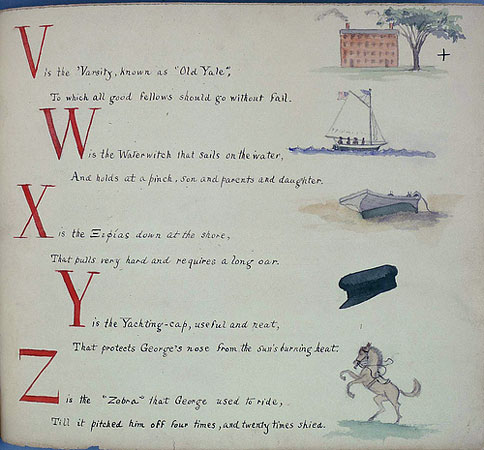 V is the 'Varsity, known as "Old Yale",
To which all good fellows should go without fail.
W is the Waterwitch that sails on the water,
And holds at a pinch, son and parents and daughter.
X is the Ξιφίας down at the shore,
That pulls very hard and requires a long oar.
Y is the Yachting-cap, useful and neat,
That protects George's nose from the sun's burning heat.
Z is the "Zobra" that George used to ride,
Till it pitched him off four times, and twenty times shied.